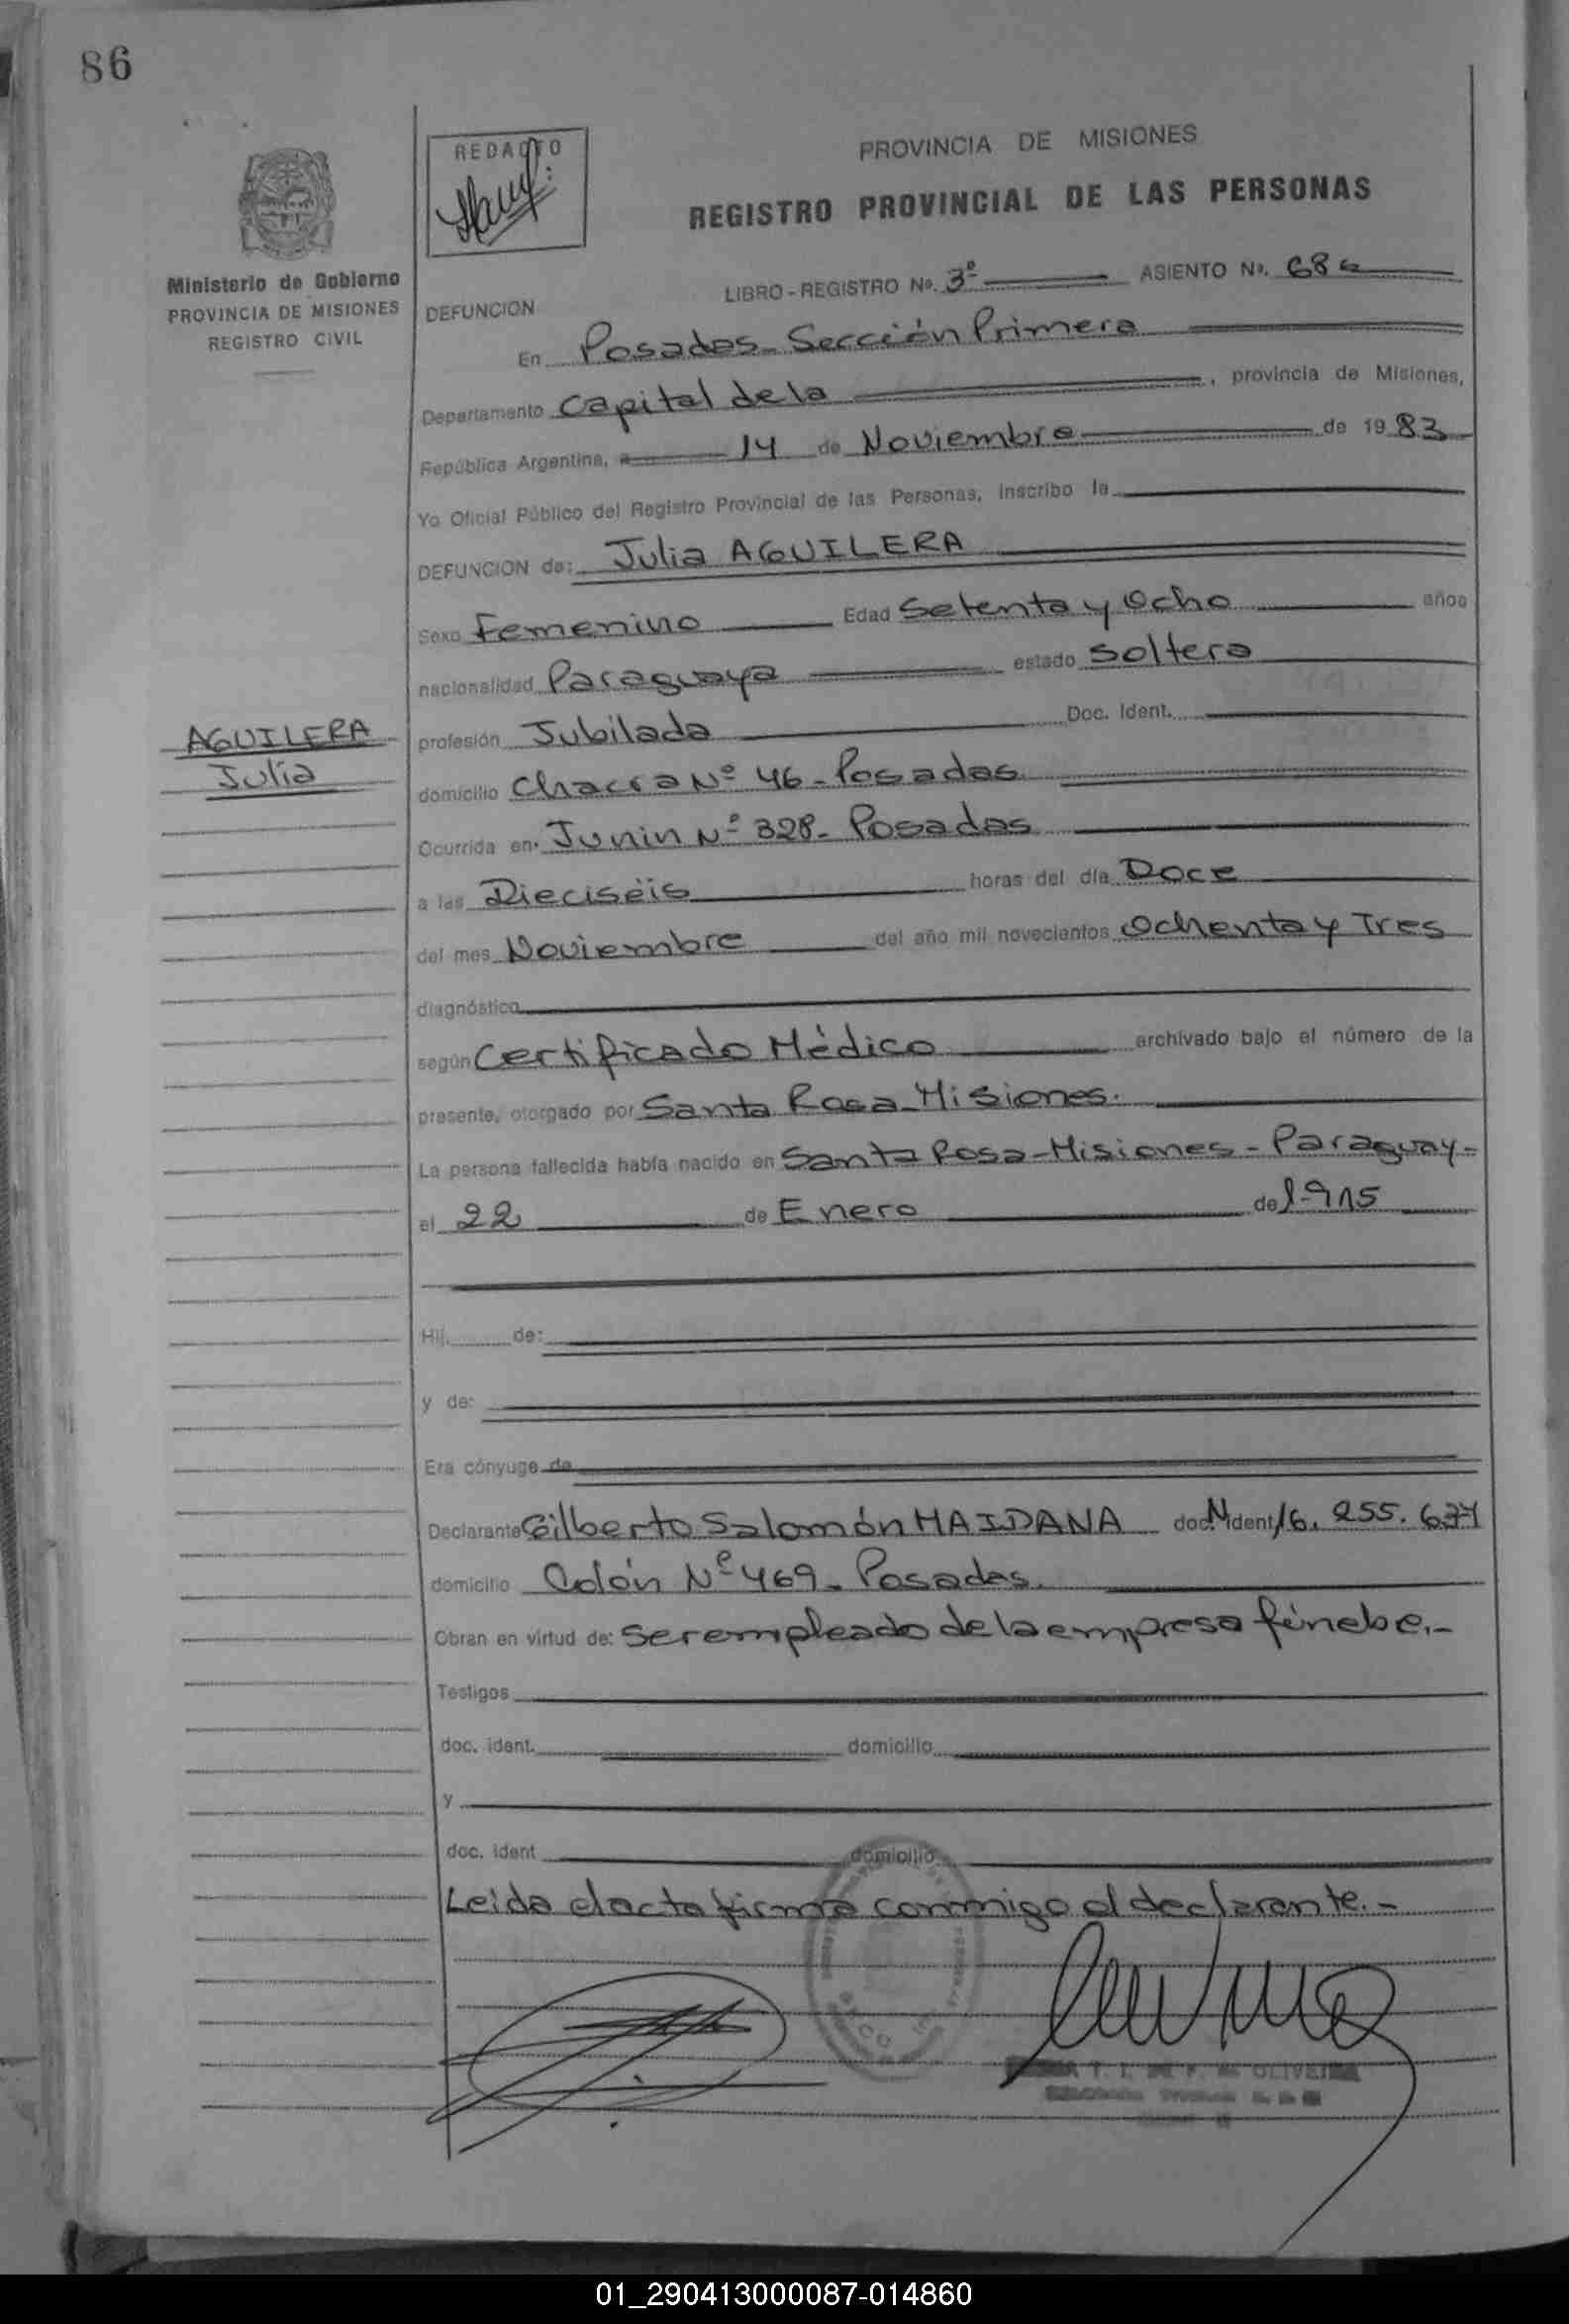 86
REDACTO
PROVINCIA DE MISIONES
REGISTRO PROVINCIAL DE LAS PERSONAS
Ministerio de Gobierno
PROVINCIA DE MISIONES
REGISTRO CIVIL
LIBRO-REGISTRO Nº. 3º ASIENTO Nº. 686
DEFUNCION
En Posadas_ Sección Primera
Departamento Capital de la , provincia de Misiones,
República Argentina, a 14 de Noviembre de 1983
Yo Oficial Público del Registro Provincial de las Personas, inscribo la
DEFUNCION de: Julia AGUILERA
Sexo Femenino Edad Setenta y Ocho años
nacionalidad Paraguaya estado Soltera
AGUILERA
Julia
profesión Jubilada Doc. Ident.
domicilio Chacra Nº 46_ Posadas
Ocurrida en Junin Nº 328_ Posadas
a las Dieciséis horas del día Doce
del mes Noviembre del año mil novecientos Ochenta y Tres
diagnóstico
según Certificado Médico archivado bajo el número de la
presente, otorgado por Santa Rosa_Misiones.
La persona fallecida había nacido en Santa Rosa-Misiones-Paraguay-
el 22 de Enero de 1-915
Hij de:
y de:
Era cónyuge de
Declarante Gilberto Salomón MAIDANA doc. ident. 16.255.637
domicilio Colón Nº 469_ Posadas.
Obran en virtud de: Ser empleado de la empresa fúnebe.-
Testigos
doc. ident. domicilio
y
doc. ident domicilio
Leida el acta firma conmigo el declarante.-
OLIVEIRA
01_290413000087-014860